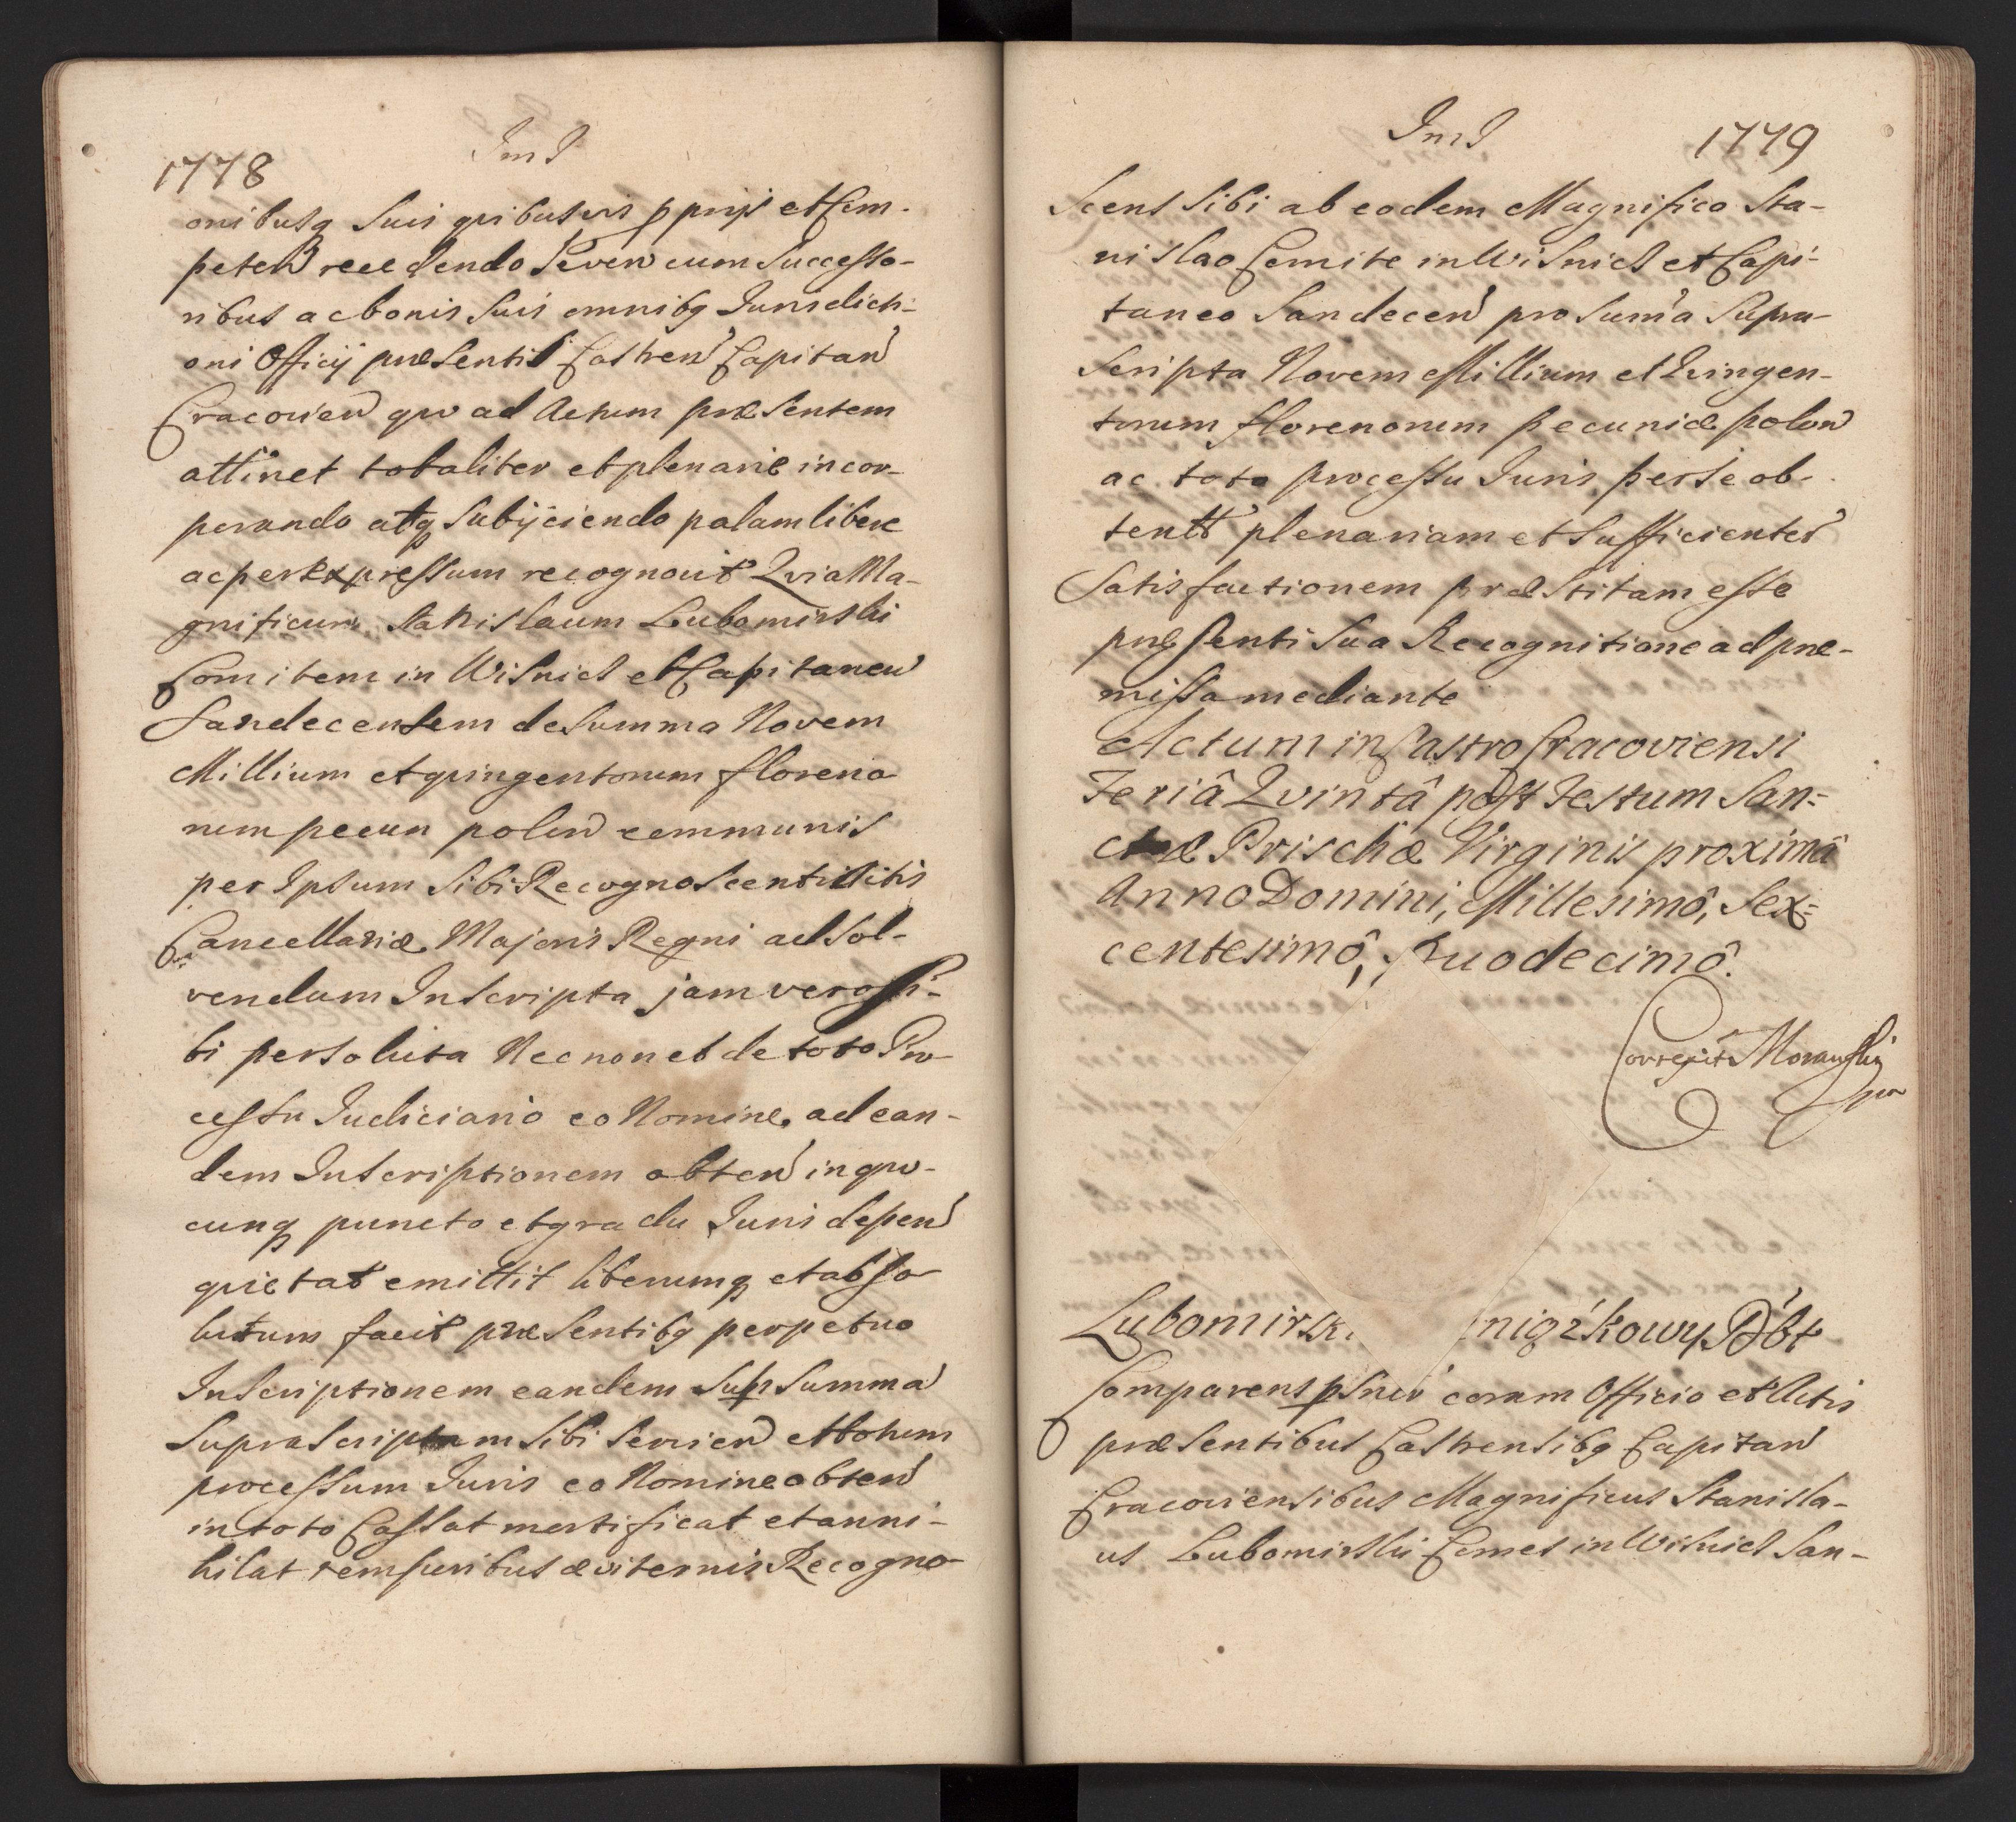 1778
Im I
onibusq suis quibusvis ppriis et Com-
peten recedendo Seven cum Successo-
ribus ac bonis Suis omnibq Jurisdicti-
oni Officij præsentis Castren Capitan
Cracovien quo ad Actum præsentem
attinet totaliter et plenarie incor-
porando atq Subijciendo palam libere
ac per Expressum recognovit Qvia Ma-
gnificum Stanislaum Lubomirski
Comitem in Wisnicz et Capitaneu
Sandecensem de Summa Novem
Millium et quingentorum floreno
rum pecun polon communis
per Ipsum Sibi Recognoscenti Actis
Cancellariæ Majoris Regni ad Sol-
vendum Inscripta jam vero Si-
bi persoluta Necnon et de toto Pro-
cessu Judiciario eo Nomine ad ean-
dem Inscriptionem obten in quo-
cunq puncto et gradu Juris depen
quietat emittit liberumq et abso-
lutum facit præsentibq perpetuo
Inscriptionem eandem Sup Summa
Suprascriptam Sibi Servien et totum
processum Juris eo Nomine obten
in toto Cassat mortificat et anni-
hilat temporibus æviternis Recogno-
Im I
1779
Scens Sibi ab eodem Magnifico Sta-
nislao Comite in Wisnicz et Capi-
taneo Sandecen pro Suma Supra-
Scripta Novem Millium et Qvingen-
torum florenorum pecuniæ polon
ac toto processu Juris per se ob-
tentt plenariam et Sufficientes
Satisfactionem præstitam esse
præsenti Sua Recognitione ad præ-
missa mediante
Actum in Castro Cracoviensi
Feriâ Qvintâ post Festum San-
ctæ Prischæ Virginis proximâ
Anno Domini, Millesimô, Sex-
centesimô, Duodecimô.
Correxit Morawski
mp
Lubomirski nigzkowy Dbt
Comparens psner coram Officio et Actis
præsentibus Castrensibq Capitan
Cracoviensibus Magnificus Stanisla-
us Lubomirski Comes in Wisnicz San-